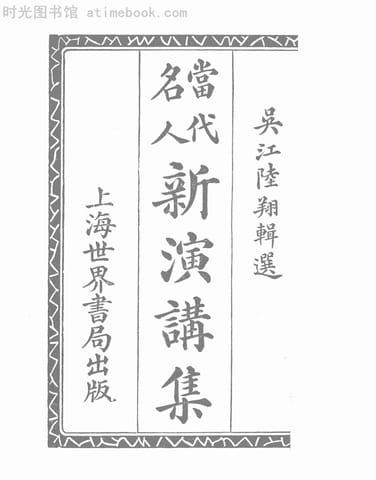 时光图书馆 atimebook.com
吳江陸翔輯選
當代
名人
新演講集
上海世界書局出版